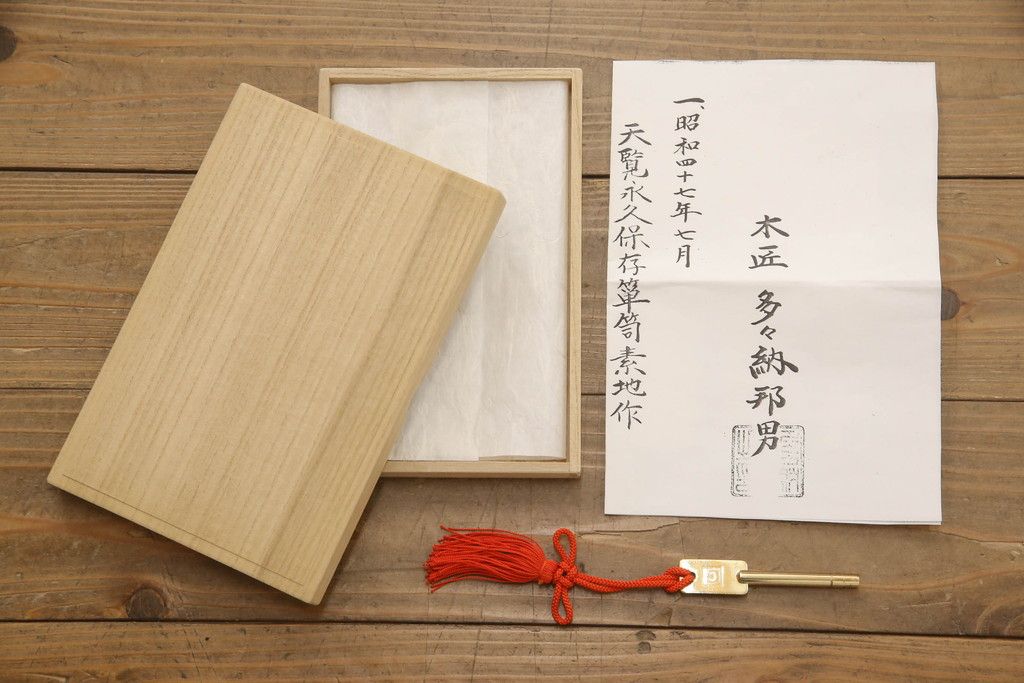 木匠 多々納邦男
一、昭和四十七年七月
天覧永久保存箪笥素地作